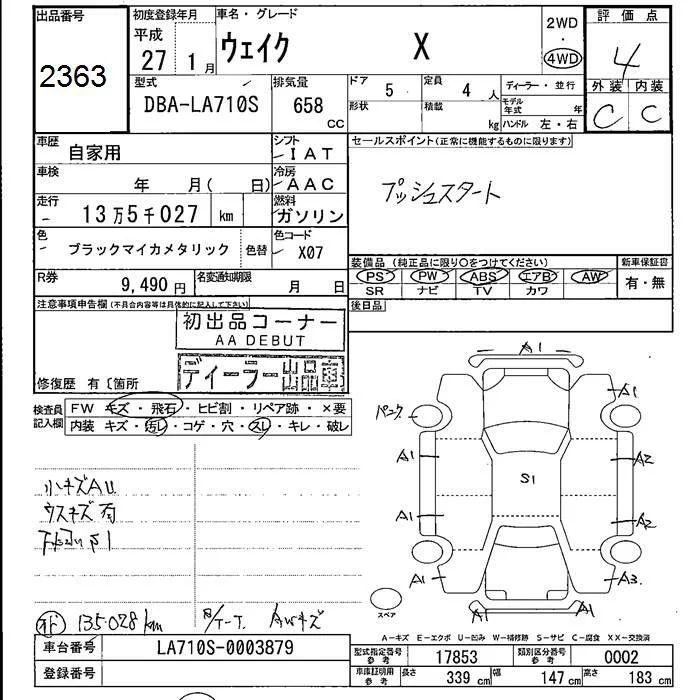 出品番号 初度登録年月 車名・グレード 2WD 評価点
2363 平成 27年 1月 ウェイク X ・ 4WD 4
外装 内装
型式 排気量 ドア 定員 ディーラー・並行 C C
DBA-LA710S 658 CC 5 4人
形状 積載 kg モデル年式 年
ハンドル 左・右
車歴 自家用 シフト IAT セールスポイント(正常に機能するものに限ります)
車検 年 月( 日) 冷房 AAC プッシュスタート
走行 13万5千027 km 燃料 ガソリン
色 ブラックマイカメタリック 色替 色コード X07
装備品 (純正品に限り○をつけてください) 新車保証書
PS PW ABS エアB AW 有・無
R券 9,490円 名変通知期限 月 日 SR ナビ TV カワ
注意事項申告欄(不具合内容等は具体的に記入して下さい) 後日品
初出品コーナー
AA DEBUT
ディーラー出品車
修復歴 有〔箇所
検査員記入欄 FW キズ・飛石・ヒビ割・リペア跡・×要
内装 キズ・汚レ・コゲ・穴・スレ・キレ・破レ
A1
A1
パンク
A1 A2
S1
A1 A2
A1 A3
A1 A1
スペア
小キズAU
ウスキズ有
オド 135028km AWキズ
A-キズ E-エクボ U-凹み W-補修跡 S-サビ C-腐食 XX-交換済
車台番号 LA710S-0003879 型式指定番号 参考 17853 類別区分番号 参考 0002
登録番号 車庫証明用 参考 長さ 339cm 幅 147cm 高さ 183cm